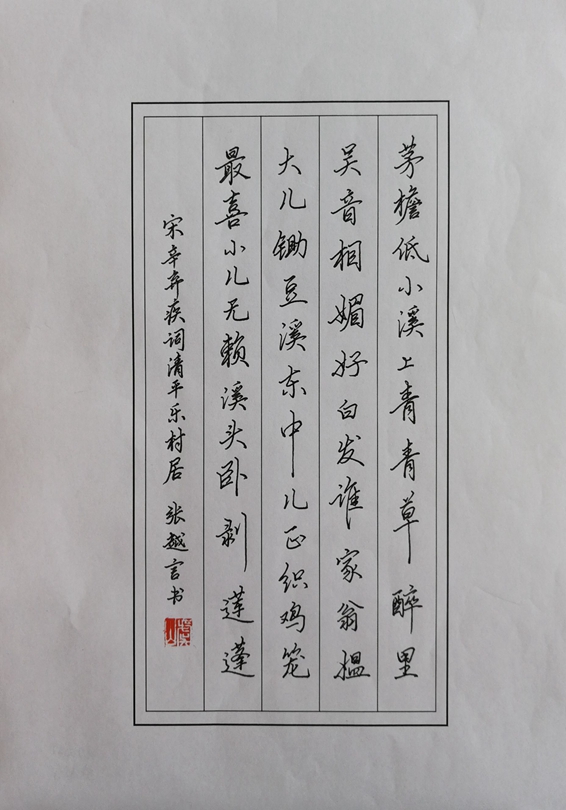 茅檐低小溪上青青草醉里
吴音相媚好白发谁家翁媪
大儿锄豆溪东中儿正织鸡笼
最喜小儿无赖溪头卧剥莲蓬
宋辛弃疾词清平乐村居 张越言书